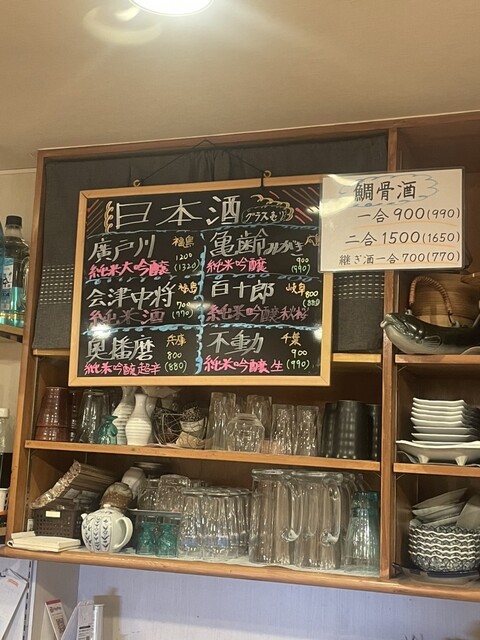 日本酒 グラス売り
廣戸川 福島
1200
(1320)
純米大吟醸
会津中将 福島
700
(770)
純米酒
奥播磨 兵庫
800
(880)
純米吟醸超辛
亀齢 広島
900
(990)
純米吟醸
百十郎 岐阜
800
(880)
純米吟醸
不動 千葉
900
(990)
純米吟醸生
鯛骨酒
一合 900(990)
二合 1500(1650)
継ぎ酒一合 700(770)